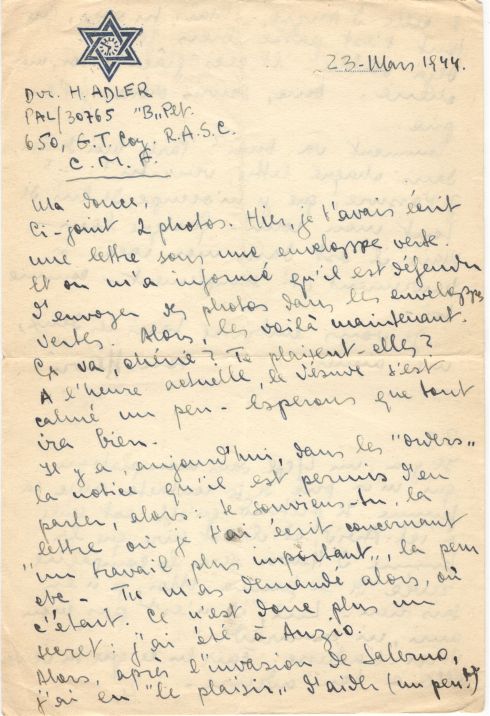 23-Mars 1944.
Dvr. H. ADLER
PAL/30765 "B" Pet.
650, G.T. Coy. R.A.S.C.
C.M.F.
Ma douce,
Ci-joint 2 photos. Hier, je t'avais écrit
une lettre sous une enveloppe verte.
Et on m'a informé qu'il est défendu
d'envoyer des photos dans les enveloppes
vertes. Alors, les voilà maintenant.
Ça va, chérie? Te plaisent-elles?
A l'heure actuelle, le Vésuve s'est
calmé un peu. Espérons que tout
ira bien.
Il y a aujourd'hui, dans les "orders"
la notice qu'il est permis d'en
parler, alors: te souviens-tu, la
lettre où je t'ai écrit concernant
"un travail plus important", la peur
etc - Tu m'as demandé alors, où
c'était. Ce n'est donc plus un
secret: j'ai été à Anzio.
Alors, après l'invasion de Salerno,
j'ai eu "le plaisir" d'aider (un peu!)